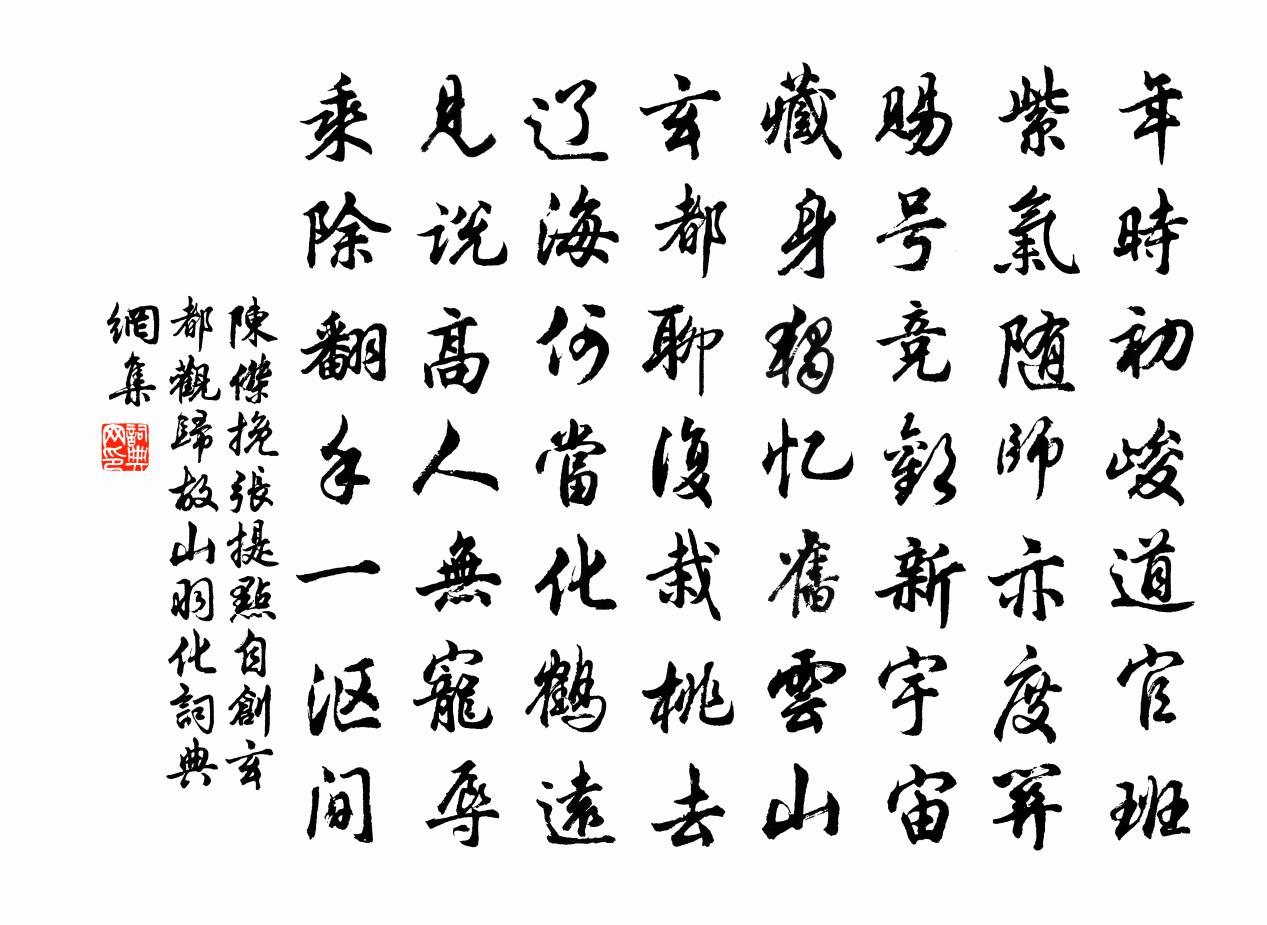 年時初峻道官班
紫氣随師亦度關
賜号竞歡新宇宙
藏身獨忆舊雲山
玄都聊復栽桃去
辽海何當化鶴還
見说高人無寵辱
乘除翻手一沤间
陳傑挽張提點自創玄
都觀歸故山羽化詞典
網集
詞典
网印